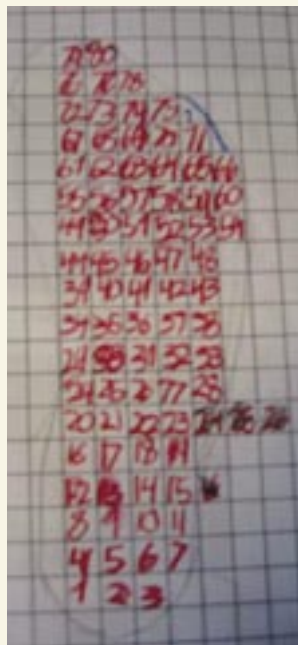 79 80
76 78
72 73 74 75
67 68 69 70 71
61 62 63 64 65 66
55 56 57 58 59 60
49 50 51 52 53 54
44 45 46 47 48
39 40 41 42 43
34 35 36 37 38
31 32 33
24 25 26 27 28
20 21 22 23 24 25 26
16 17 18 19
12 13 14 15
8 9 10 11
4 5 6 7
1 2 3